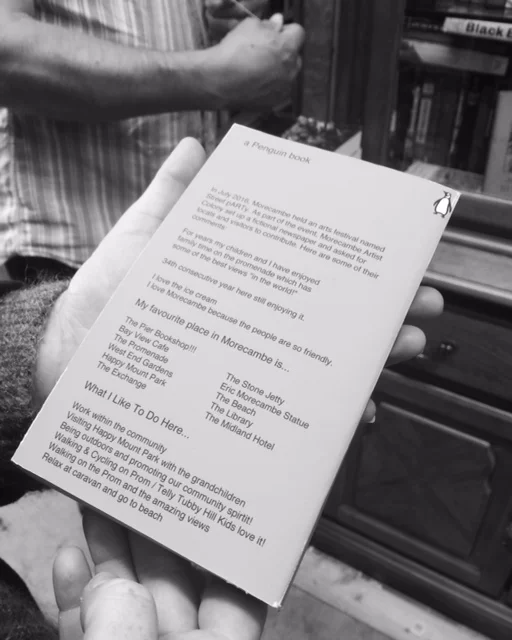 Black
a Penguin book
In July 2016, Morecambe held an arts festival named
Street pARTy. As part of the event, Morecambe Artist
Colony set up a fictional newspaper and asked for
locals and visitors to contribute. Here are some of their
comments:
For years my children and I have enjoyed
family time on the promenade which has
some of the best views "in the world!"
34th consecutive year here still enjoying it.
I love the ice cream
I love Morecambe because the people are so friendly.
My favourite place in Morecambe is...
The Pier Bookshop!!!
Bay View Cafe
The Promenade
West End Gardens
Happy Mount Park
The Exchange
The Stone Jetty
Eric Morecambe Statue
The Beach
The Library
The Midland Hotel
What I Like To Do Here...
Work within the community
Visiting Happy Mount Park with the grandchildren
Being outdoors and promoting our community spirtit!
Walking & Cycling on Prom / Telly Tubby Hill Kids love it!
Walking on the Prom and the amazing views
Relax at caravan and go to beach